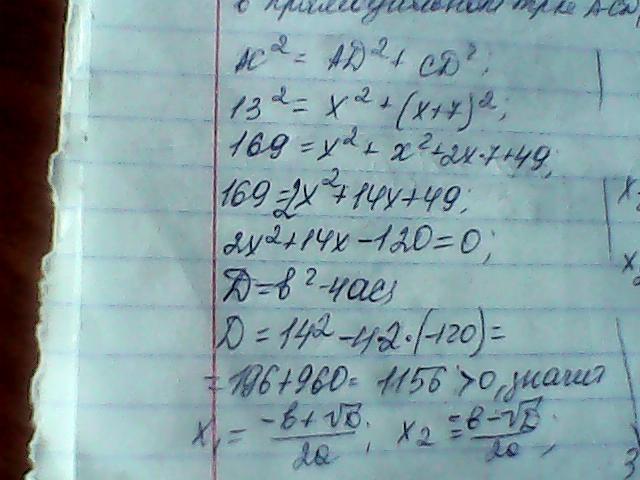 в прямоугольном тр-ке ACD
AC² = AD² + CD²;
13² = x² + (x+7)²;
169 = x² + x² + 2x·7 + 49;
169 = 2x² + 14x + 49;
2x² + 14x - 120 = 0;
D = b² - 4ac;
D = 14² - 4·2·(-120) =
= 196 + 960 = 1156 > 0, значит
x₁ = (-b + √D)/2a; x₂ = (-b - √D)/2a;
x
x
3